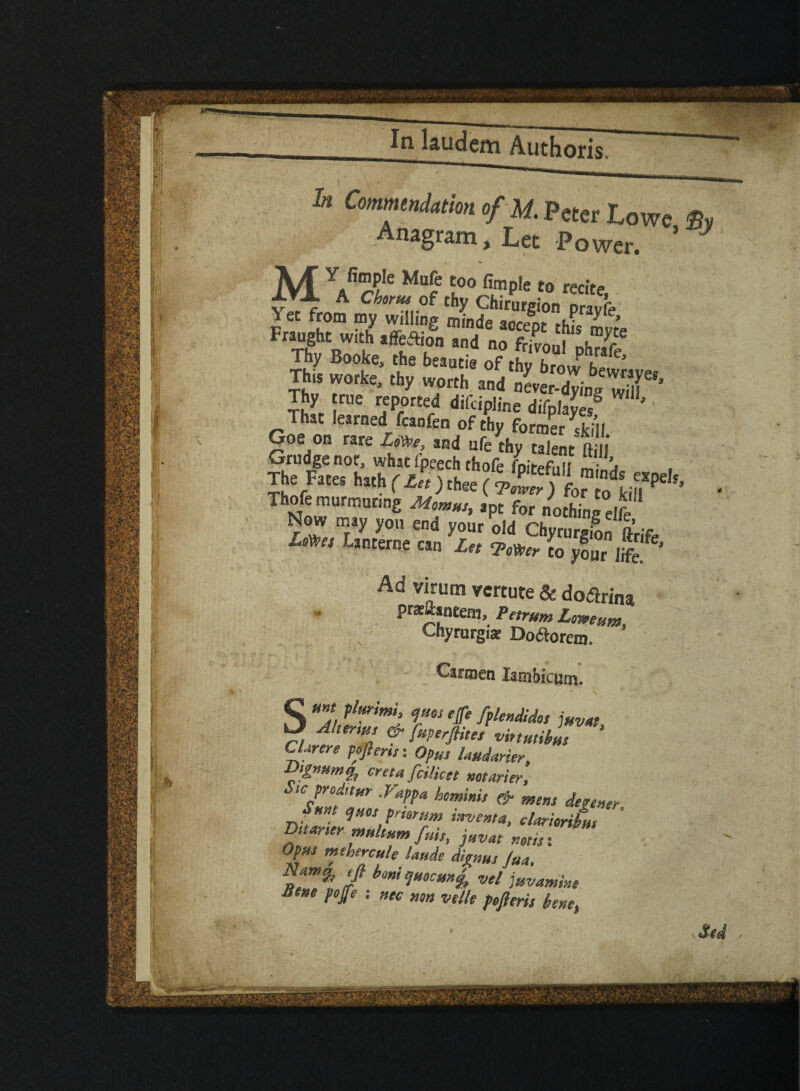 In laudem Authoris.
In Commendation of M. Peter Lowe, By
Anagram, Let Power.
MY ſimple Muſe too ſimple to recite,
A Chorus of thy Chirurgion prayſe,
Yet from my willing minde accept this myte
Fraught with affection and no frivoul phraſe,
Thy Booke, the beautie of thy brow bewrayes,
This worke, thy worth and never-dying will,
Thy true reported diſcipline diſplayes,
That learned ſcanſen of thy former skill.
Goe on rare Lowe, and uſe thy talent ſtill,
Grudge not, what ſpeech thoſe ſpitefull minds expels,
The Fates hath (Let) thee (Power) for to kill
Thoſe murmuring Momus, apt for nothing elſe,
Now may you end your old Chyrurgion ſtrife,
Lowes Lanterne can Let Power to your life.
Ad virum vertute & doctrina
præſtantem, Petrum Loweum,
Chyrurgiæ Doctorem.
Carmen Iambicum.
Sunt plurimi, quos eſſe ſplendidos juvat,
Alterius & ſuperſtites virtutibus
Clarere poſteris: Opus laudarier,
Dignumq; creta ſcilicet notarier,
Sic proditur. Vappa hominis & mens degener.
Sunt quos priorum inventa, clarioribus
Ditarier multum ſuis, juvat notis:
Opus mehercule laude dignus ſua.
Namq; eſt boni quocunq; vel juvamine
Bene poſſe: nec non velle poſteris bene,
Sed